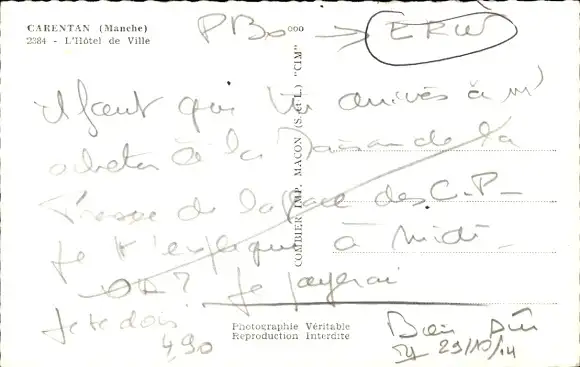 CARENTAN (Manche)
2384 - L'Hôtel de Ville
PB ERW
COMBIER IMP. MACON (S.-&-L.) "CIM"
Il faut que tu arrives à m'
acheter à la Maison de la
Presse de la des C.P.
Je t'explique à Midi
OK? Je payerai
Je te dois
4,90
Photographie Véritable
Reproduction Interdite
Bien
29/10/14